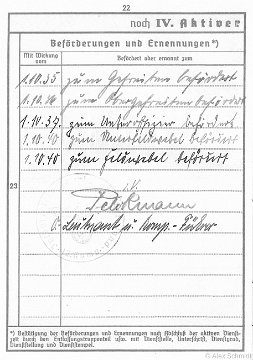 22
noch IV. Aktiver
Beförderungen und Ernennungen*)
Mit Wirkung
vom
Befördert oder ernannt zum
1.10.35 zum Gefreiten befördert
1.10.36 zum Obergefreiten befördert
1.10.37. zum Unteroffizier befördert
zum Unterfeldwebel befördert
1.10.40 zum Feldwebel befördert
23
Leutnant u. Komp.-Führer
*) Bestätigung der Beförderungen und Ernennungen nach Abschluß der aktiven Dienst-
zeit durch den Entlassungstruppenteil usw. mit Dienststelle, Unterschrift, Dienstgrad,
Dienststellung und Dienststempel.
© Alex Schmidt